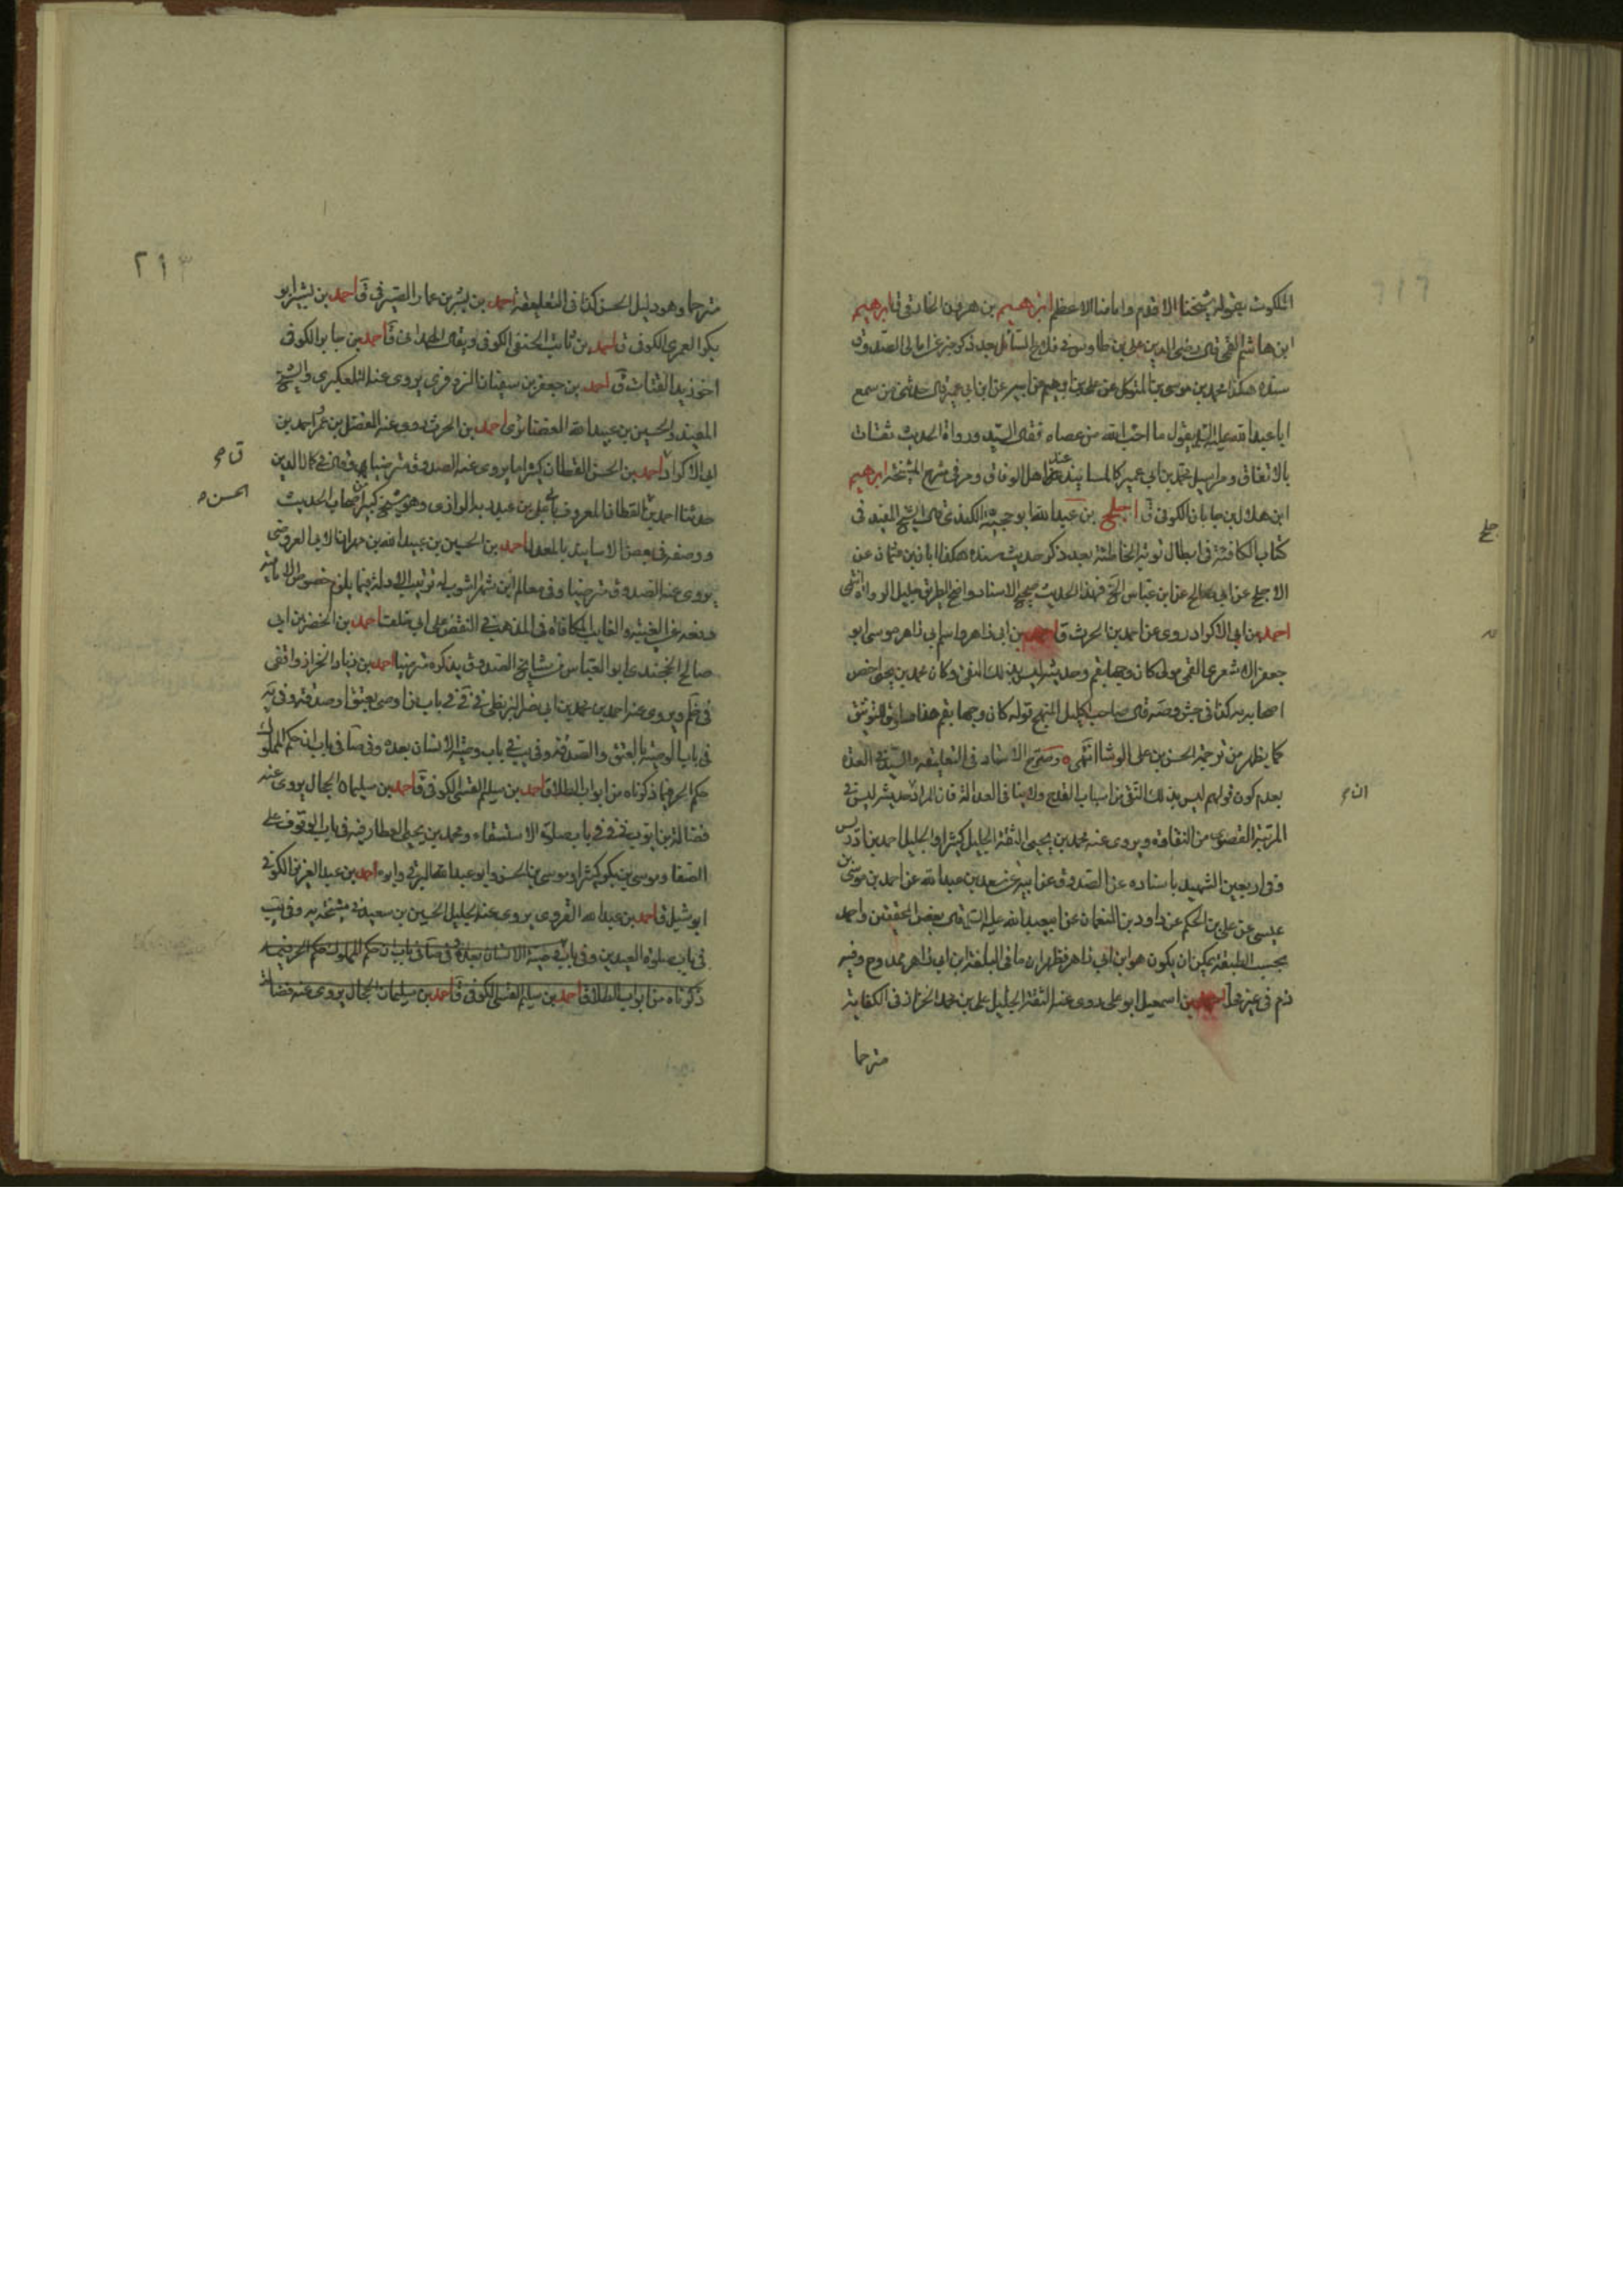 الملكوت بقوله شيخنا الاقدم وامامنا الاعظم ابرهيم بن هرون الخارقى ق ابرهيم
ابن هاشم القمى قال رضى الدين على بن طاوس فى فلاح السائل بعد ذكر خبر عن امالى الصدوق
سنده هكذا محمد بن موسى بن المتوكل عن على بن ابرهيم عن ابيه عن ابن ابى عمير قال حدثنى من سمع
ابا عبد الله عليه السلم يقول ما احب الله من عصاه فقال السيد ورواة الحديث ثقات
بالاتفاق ومراسيل محمد بن ابى عمير كالمسانيد عند اهل الوفاق ومر فى شرح المشيخة ابرهيم
ابن هلال بن جابان الكوفى ق اجلح بن عبد الله ابو حجية الكندى قال الشيخ المفيد فى
كتاب الكافئة فى ابطال توبة الخاطئة بعد ذكر حديث سنده هكذا ابان بن عثمان عن
الاجلح عن ابى صالح عن ابن عباس الخ فهذا الحديث صحيح الاسناد واضح الطريق جليل الرواة انتهى
احمد بن ابى الاكراد روى عن احمد بن الحرث ق احمد بن ابى زاهر واسم ابى زاهر موسى ابو
جعفر الاشعرى القمى مولى كان وجها بقم وحديثه ليس بذلك النقى وكان محمد بن يحيى اخص
اصحابه به كذا فى جش وصه قال صاحب اكليل المنهج قوله كان وجها بقم هذا صار التوثيق
كما يظهر من ترجمة الحسن بن على الوشا انتهى وصرح الاستاد فى التعليقة والسيد فى العدة
بعدم كون قولهم ليس بذلك النقى من اسباب القدح ولا ينافى العدالة فان المراد حديثه ليس فى
المرتبة القصوى من النقاوة ويروى عنه محمد بن يحيى الثقة الجليل كثيرا والجليل احمد بن ادريس
وفى اربعين الشهيد باسناده عن الصدوق عن ابيه عن سعد بن عبد الله عن احمد بن موسى بن
عيسى عن على بن الحكم عن داود بن النعمان عن ابيعبد الله عليه السلم قال بعض المحققين واحمد
بحسب الطبقة يمكن ان يكون هو ابن ابى زاهر فظهر ان ما فى البلغة ابن ابى زاهر ممدوح وفيه
ذم فى غير محله احمد بن اسمعيل ابو على روى عنه الثقة الجليل على بن محمد الخزاز فى الكفاية
مترحما
جلح
ان م
٢١٣
مترحما وهو دليل الحسن كذا فى التعليقة احمد بن بشر بن عمار الصيرفى ق احمد بن بشير ابو
بكر العمرى الكوفى ق احمد بن ثابت الحنفى الكوفى ويقال الهمدانى ق احمد بن جابر الكوفى
اخو زيد القتات ق احمد بن جعفر بن سفيان البزوفرى يروى عنه التلعكبرى والشيخ
المفيد والحسين بن عبيد الله الغضائرى احمد بن الحرث روى عنه المفضل بن عمر احمد بن
ابى الاكراد احمد بن الحسن القطان كثيرا ما يروى عنه الصدوق مترضيا وقال فى كمال الدين
حدثنا احمد بن القطان المعروف بابى على بن عبد ربه الرازى وهو شيخ كبير من اصحاب الحديث
ووصفه فى بعض الاسانيد بالمعدل احمد بن الحسين بن عبيد الله بن مهران الابى العروضى
يروى عنه الصدوق مترضيا وفى معالم ابن شهراشوب له ترتيب الادلة فيما يلزم خصوم الامامية
دفعه عن الغيبة والغائب المكافاة فى المذهب فى النقض على ابى خلف احمد بن الخضر بن ابى
صالح الخجندى ابو العباس من مشايخ الصدوق يذكره مترضيا احمد بن زياد الخزاز واقفى
فى باب الوصية بالعتق والصدقة وفى يب فى باب وصية الانسان بعبده وفى صا فى باب ان حكم المملوك
حكم الحر فيما ذكرناه من ابواب الطلاق احمد بن سليم القبى الكوفى ق احمد بن سليمان الحجال يروى عنه
فضالة بن ايوب فى باب صلوة الاستسقاء ومحمد بن يحيى العطار فيه فى باب الوقوف على
الصفا وموسى بن بكر كثيرا وموسى بن الحسن وابو عبد الله البرقى وابوه احمد بن عبد العزيز الكوفى
ابو شبل ق احمد بن عبد الله القروى يروى عنه الجليل الحسين بن سعيد فى مشيخة يه وفى يب
فى باب صلوة العيدين وفى باب وصية الانسان بعبده وفى صا فى باب ان حكم المملوك حكم الحر فيما
ذكرناه من ابواب الطلاق احمد بن سليم القبى الكوفى ق احمد بن سليمان الحجال يروى عنه فضالة
الحسن